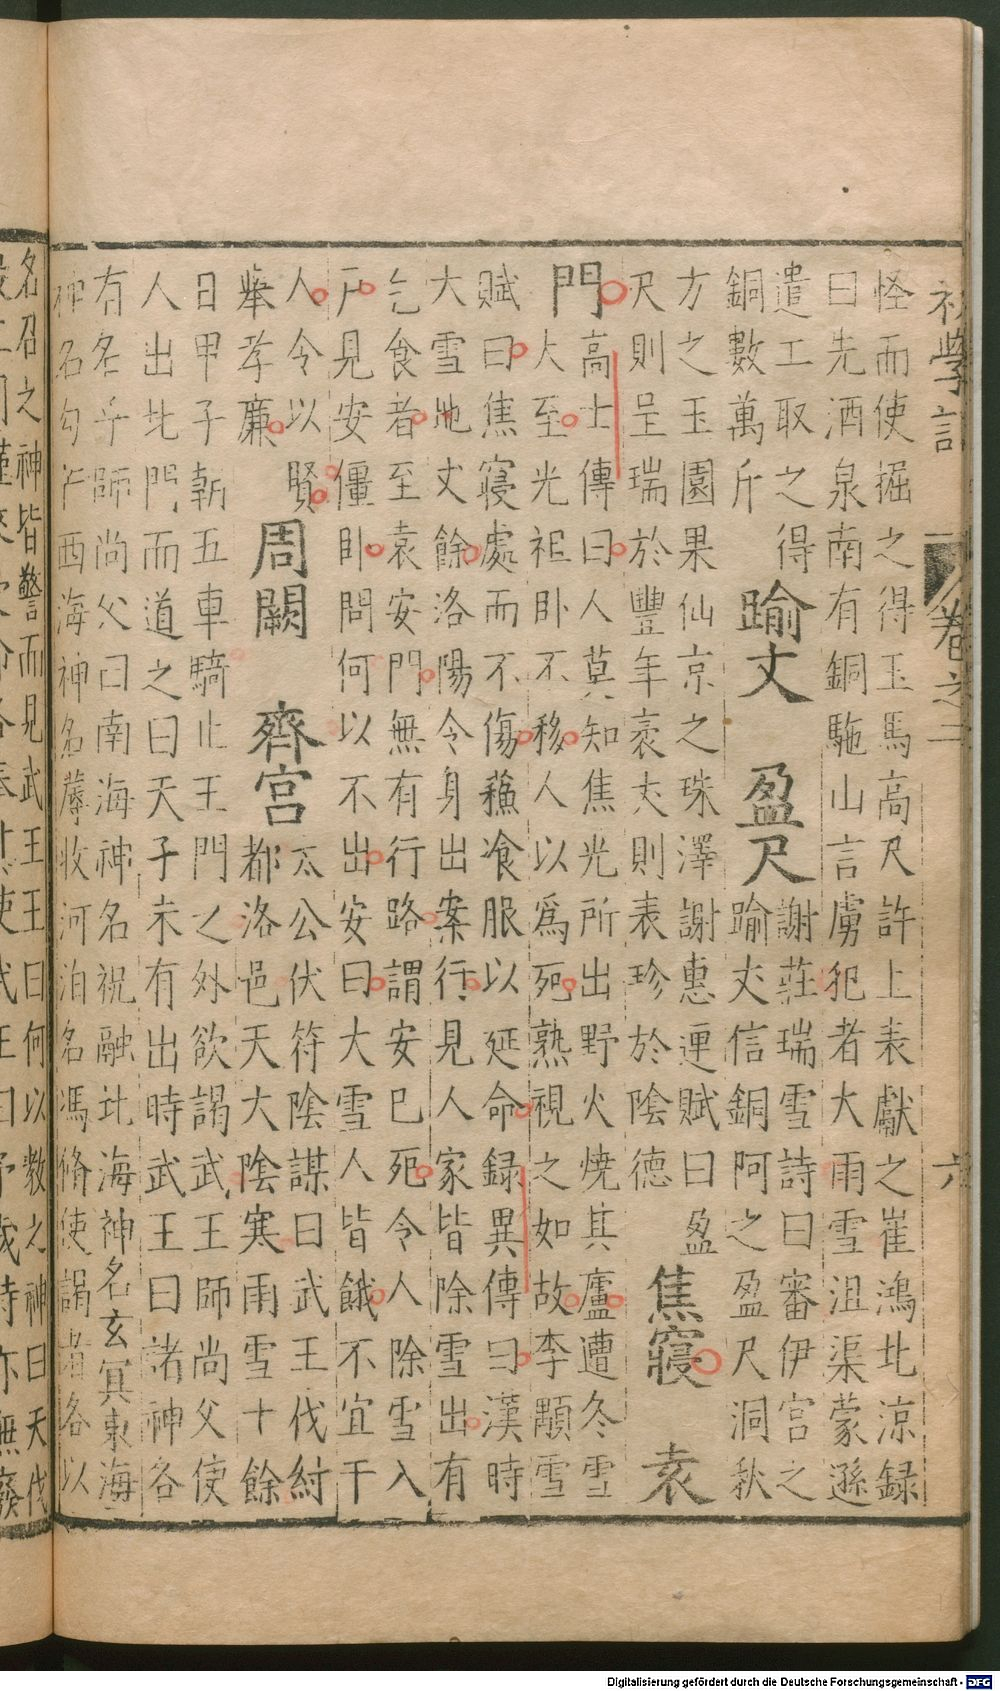 初學記 卷之二 六
怪而使掘之得玉馬高尺許上表獻之崔鴻北涼録
曰先酒泉南有銅駞山言虜犯者大雨雪沮渠蒙遜
遣工取之得
銅數萬斤
踰丈 盈尺
謝莊瑞雪詩曰審伊宫之
踰丈信銅阿之盈尺洞秋
方之玉園果仙京之珠澤謝惠連賦曰盈
尺則呈瑞於豐年袤丈則表珍於陰德
焦寢 袁
門
高士傳曰人莫知焦光所出野火燒其廬遭冬雪
大至光袒卧不移人以爲死熟視之如故李顒雪
賦曰焦寢處而不傷蘓飡服以延命録異傳曰漢時
大雪地丈餘洛陽令身出案行見人家皆除雪出有
乞食者至袁安門無有行路謂安已死令人除雪入
戸見安僵卧問何以不出安曰大雪人皆餓不宜干
人令以賢
舉孝廉
周闕 齊宫
太公伏符陰謀曰武王伐紂
都洛邑天大陰寒雨雪十餘
日甲子朝五車騎止王門之外欲謁武王師尚父使
人出北門而道之曰天子未有出時武王曰諸神各
有名乎師尚父曰南海神名祝融北海神名玄冥東海
神名勾芒西海神名蓐收河泊名馮脩使謁者各以
名召之神皆警而見武王王曰何以教之神曰天伐
武王曰予歲時亦無廢
Digitalisierung gefördert durch die Deutsche Forschungsgemeinschaft - DFG